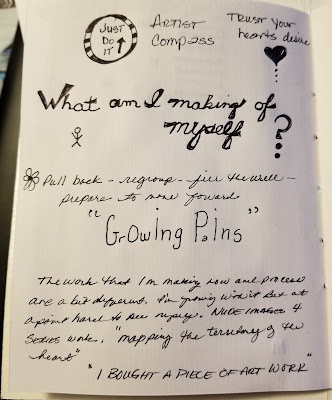 JUST
DO
IT
ARTIST
Compass
TRUST your
hearts desire
What am I making of
myself ?
Pull back - regroup - fill the well -
prepare to move forward
"Growing Pains"
The work that I'm making now and process
are a bit different. I'm growing but at
a point hard to see myself. NUDE IMAGES &
SERIES work. "mapping the territory of the
heart"
"I BOUGHT A PIECE OF ART WORK"